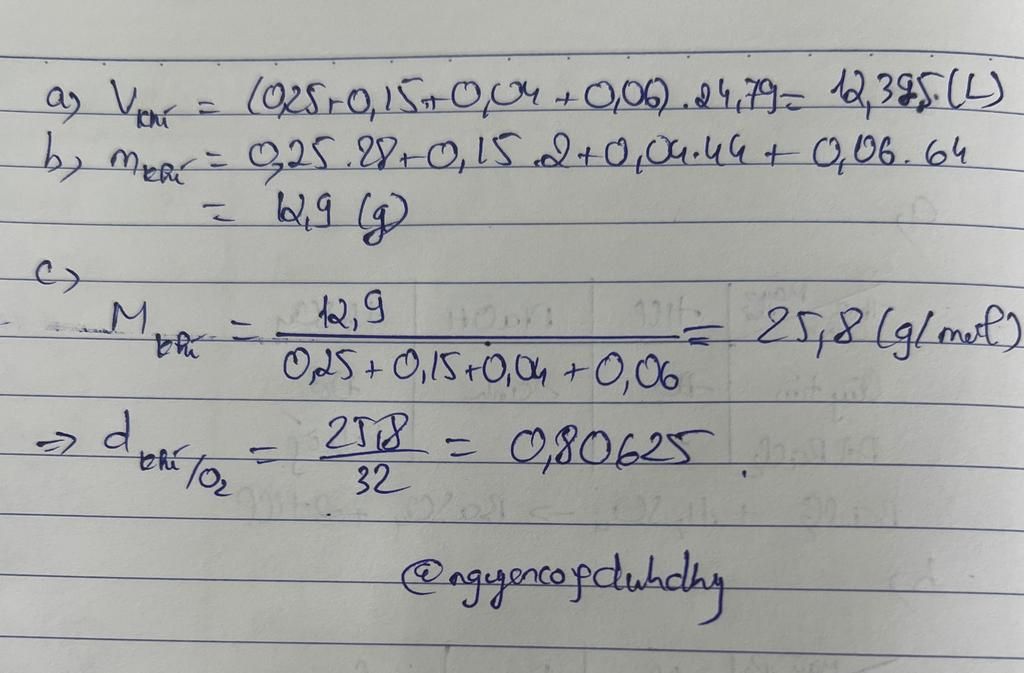 a) Vkhí = (0,25+0,15+0,04+0,06).24,79= 12,395.(L)
b) mkhí = 0,25.28+0,15.2+0,04.44 + 0,06.64
= 12,9 (g)
c)
Mkhí = 12,9 / 0,25+0,15+0,04+0,06 = 25,8 (g/mol)
=> dkhí/O2 = 25,8 / 32 = 0,80625.